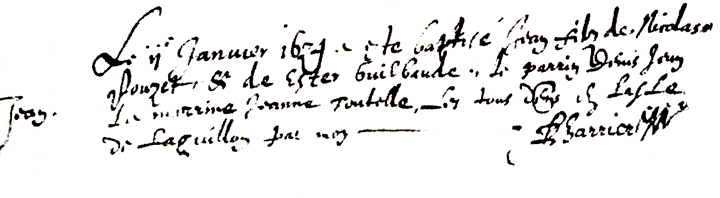 Le ijᵉ Janvier 1634 a este baptisé Jean filz de Nicolas
Pouzet & de Ester Guilbaude. Le parrin Denis Jean
Jean. La marrine Jeanne Toutelle, Les tous
de Laguillon par moy Charrier